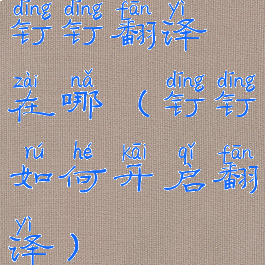 dīng dīng fān yì
钉钉翻译
zài nǎ dīng dīng
在哪（钉钉
rú hé kāi qǐ fān
如何开启翻
yì
译）